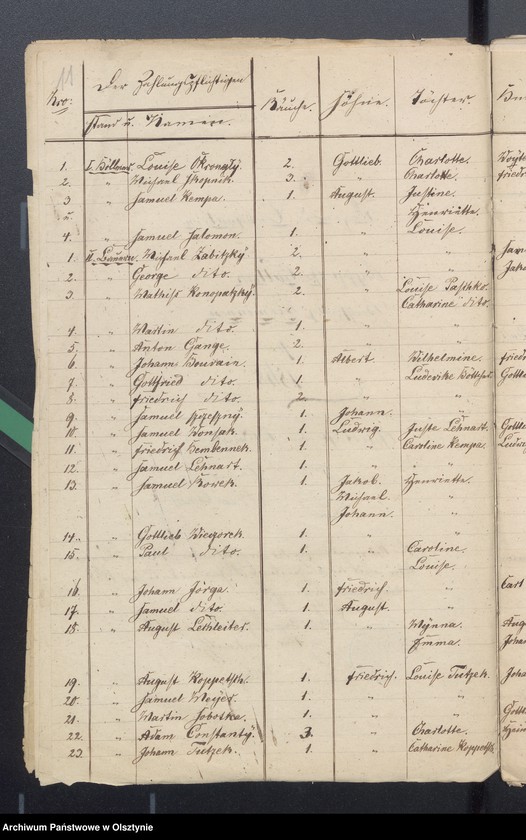 11
Nro: Der Zahlungspflichtigen Stand u. Namen. Rauche. Söhne. Töchter.
1. I. Louise Okrongly. 2. Gottlieb. Charlotte.
2. " Michael Skopnik. 3. " Charlotte. Friedr
3 " Samuel Kempa. 1. August. Justine.
" Henriette.
4. " Samuel Salomon. 1. " Louise.
1. II. Bauern. Michael Zabitzky 2. " "
2. " George dito. 2. " "
3. " Mathiss Konopatzky. 2. " Louise Paschko.
Catharine dito.
4. " Martin dito. 1. " "
5. " Anton Gange. 2. " "
6. " Johann 1. Albert. Wilhelmine. Friedr
7. " Gottfried dito. 1. " Ludovike Gottl
8. " Friedrich dito. 2. " "
9. " Samuel 1. Johann. "
10. " Samuel Konjak. 1. Ludwig. Juste Lehnart. Gottl
11. " Friedrich Bembennek. 1. " Caroline Kempa. Ludw
12. " Samuel Lehnart. 1. " "
13. " Samuel 1. Jakob. Henriette.
Michael. "
Johann. "
14. " Gottlieb Wiegorek. 1. " "
15. " Paul dito. 1. " Caroline.
Louise.
16. " Johann Jorga. 1. Friedrich. " Carl
17. " Samuel dito. 1. August. "
18. " August Lechleiter. 1. " Mynna. Aug
Emma. Johan
19. " August Koppetsch. 1. Friedrich. Louise Tutzek. Joha
20. " Samuel Meyer. 1. " "
21. " Martin Sobottka. 1. " " Gott
22. " Adam Constanty. 3. " Charlotte.
23. " Johann Tutzek. 1. " Catharine Koppetsch
Archiwum Państwowe w Olsztynie